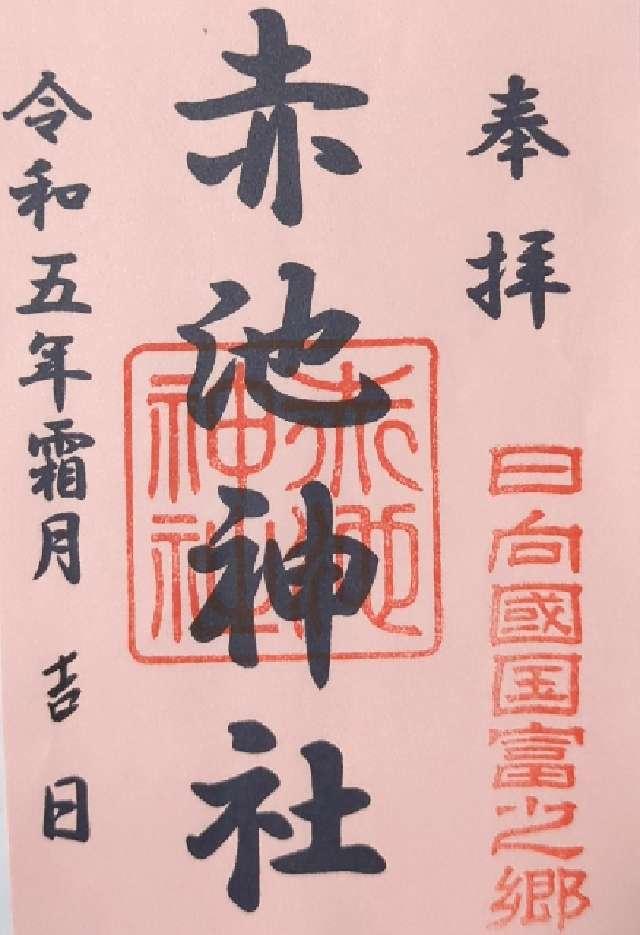 奉拝
日向國国富之郷
赤池神社
赤池
神社
令和五年霜月吉日